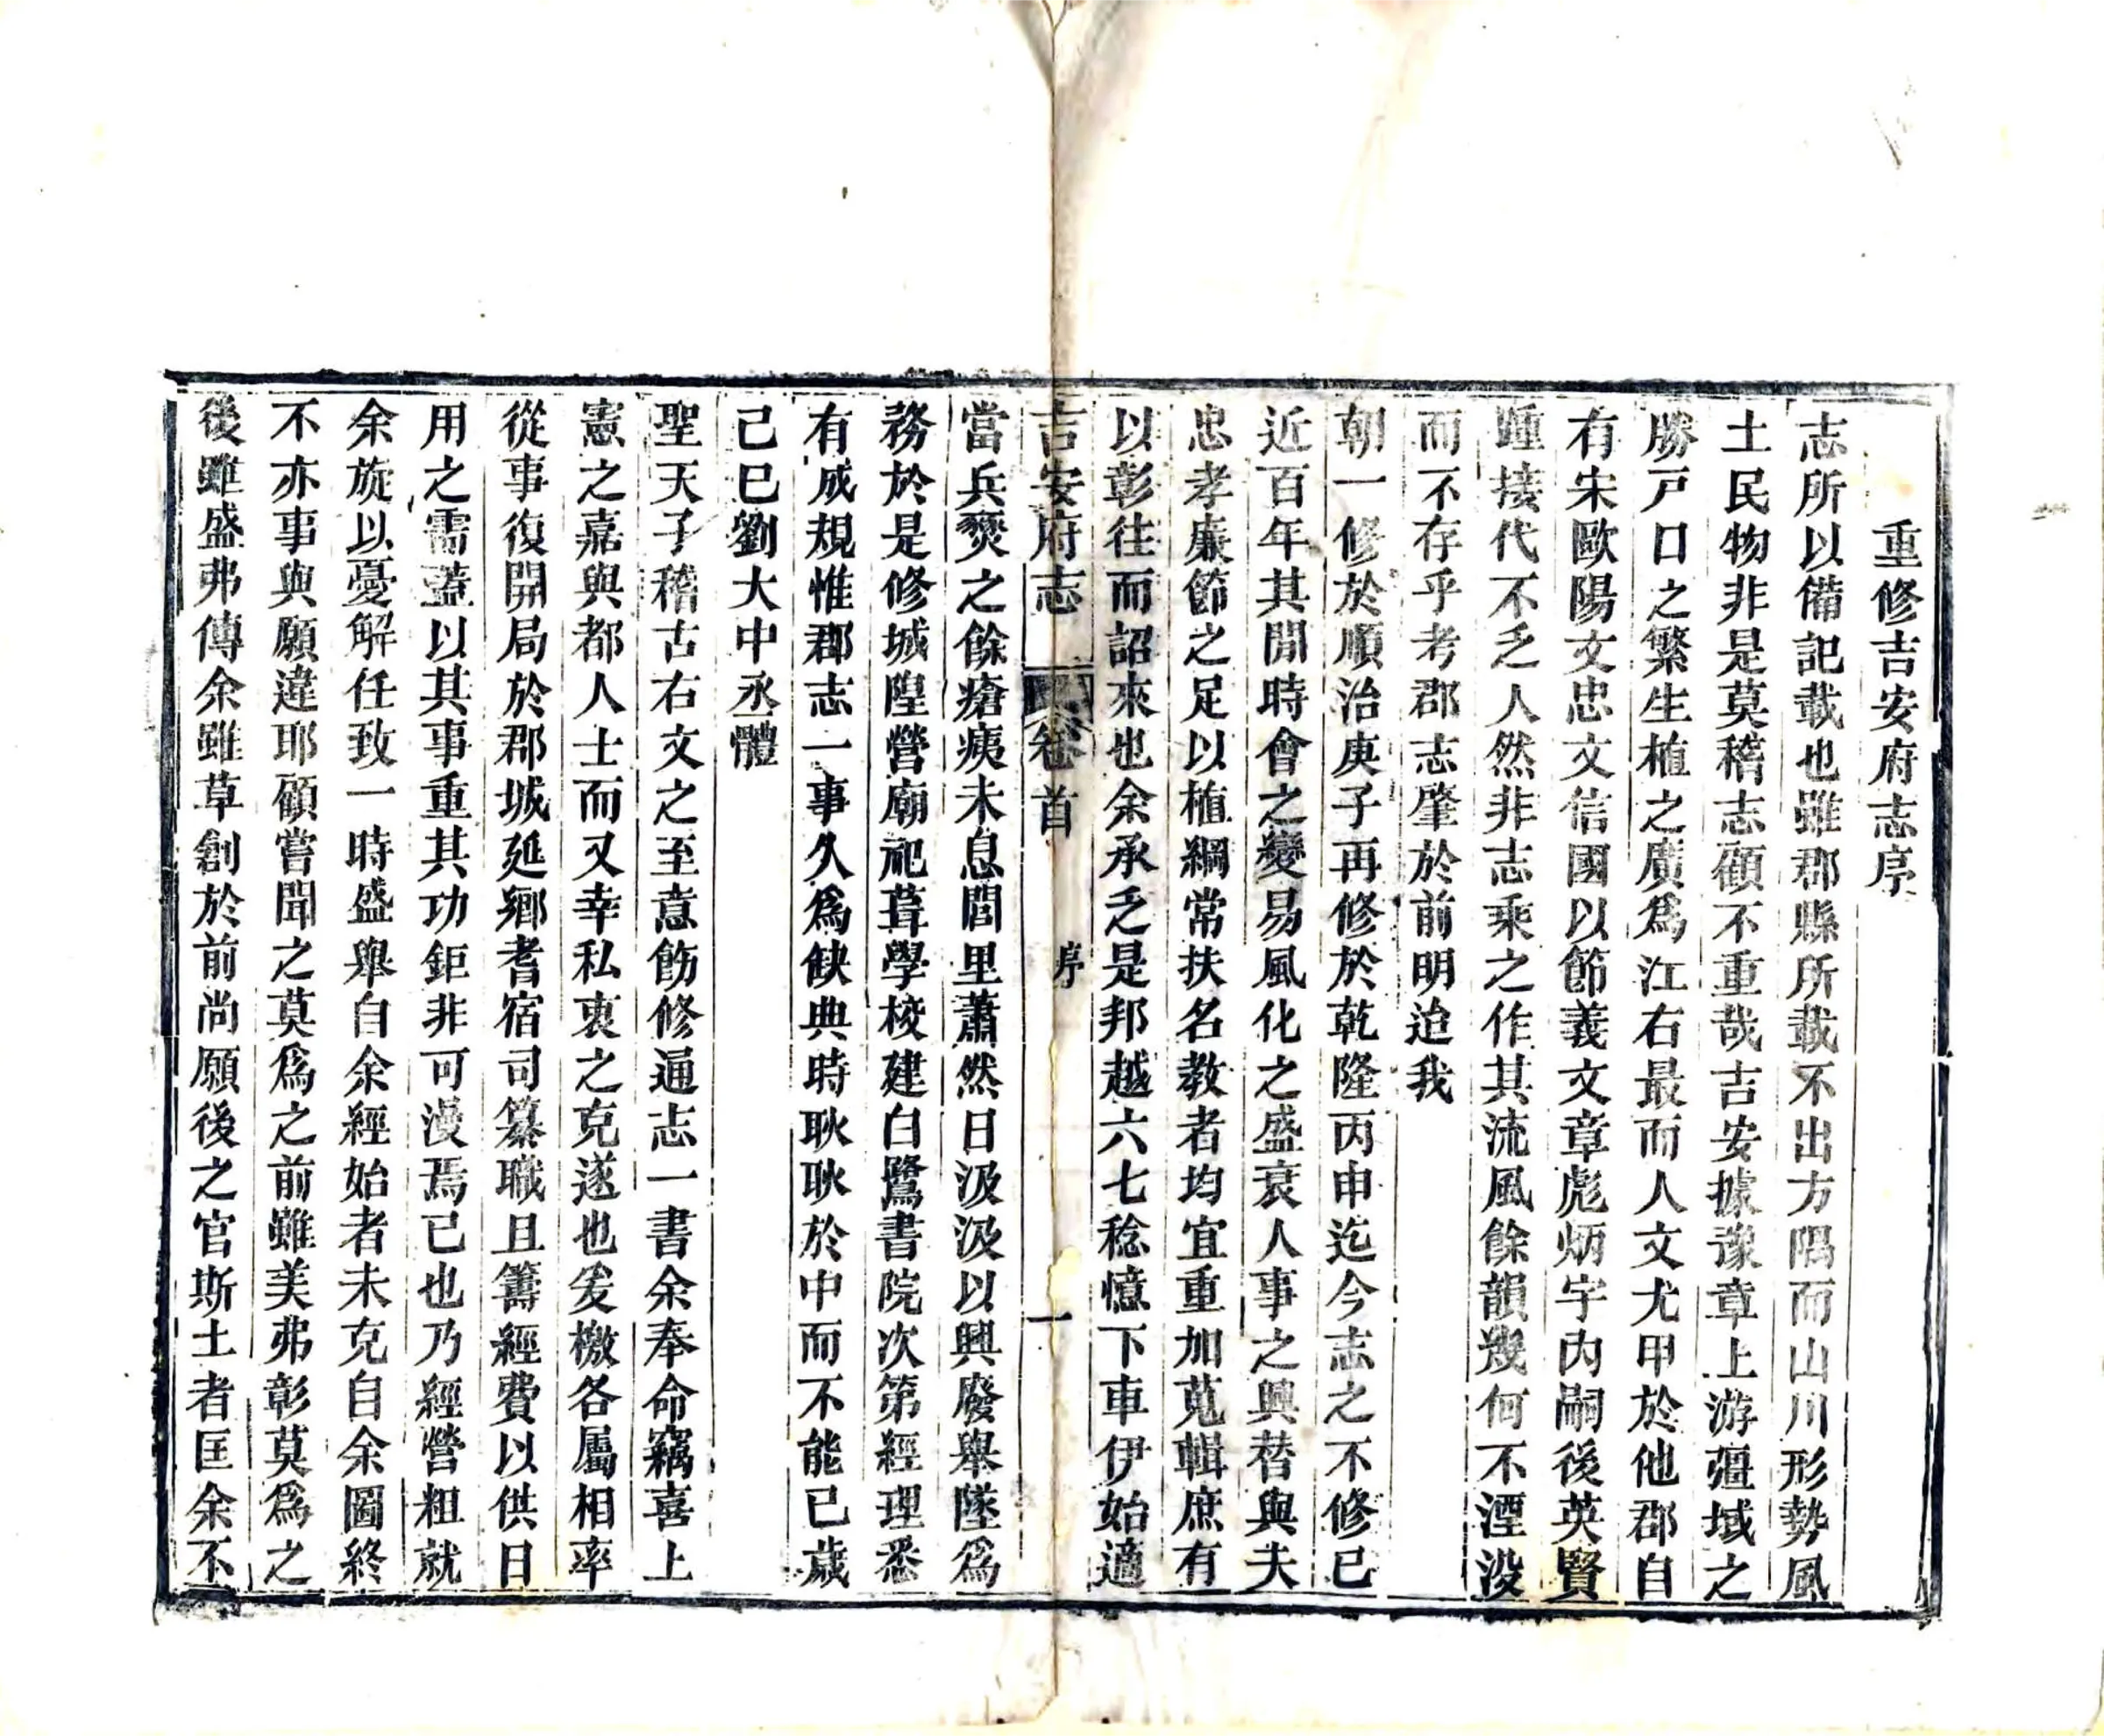 重修吉安府志序
志所以備記載也雖郡縣所載不出方隅而山川形勢風
土民物非是莫稽志顧不重哉吉安據豫章上游疆域之
勝戸口之繁生植之廣爲江右最而人文尤甲於他郡自
有宋歐陽文忠文信國以節義文章彪炳宇內嗣後英賢
踵接代不乏人然非志乘之作其流風餘韻幾何不湮没
而不存乎考郡志肇於前明迨我
朝一修於順治庚子再修於乾隆丙申迄今志之不修已
近百年其閒時會之變易風化之盛衰人事之興替與夫
忠孝廉節之足以植綱常扶名教者均宜重加蒐輯庶有
以彰往而詔來也余承乏是邦越六七稔憶下車伊始適
吉安府志 卷首 序 一
當兵燹之餘瘡痍未息閭里蕭然日汲汲以興廢舉墜爲
務於是修城隍營廟祀葺學校建白鷺書院次第經理悉
有成規惟郡志一事久爲缺典時耿耿於中而不能已歲
己巳劉大中丞體
聖天子稽古右文之至意飭修通志一書余奉命竊喜上
憲之嘉與都人士而又幸私衷之克遂也爰檄各屬相率
從事復開局於郡城延鄉耆宿司纂職且籌經費以供日
用之需蓋以其事重其功鉅非可漫焉已也乃經營粗就
余旋以憂解任致一時盛舉自余經始者未克自余圖終
不亦事與願違耶顧嘗聞之莫爲之前雖美弗彰莫爲之
後雖盛弗傳余雖草創於前尚願後之官斯土者匡余不